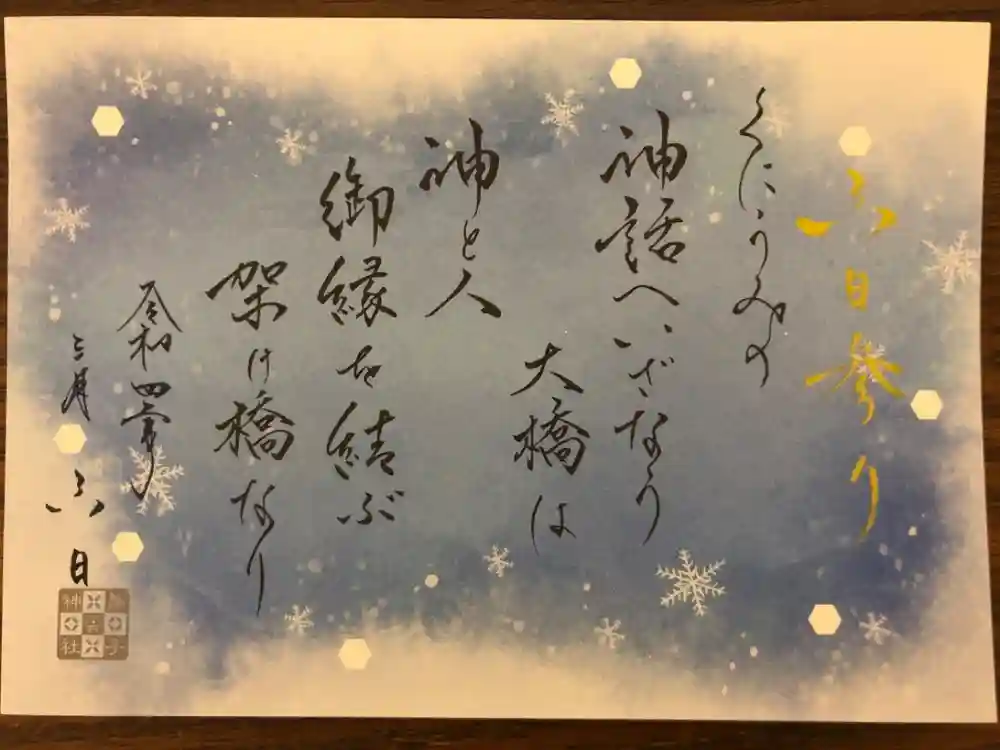 六日参り
くにうみの
神話へいざなう
大橋は
神と人
御縁を結ぶ
架け橋なり
令和四年
三月 六日